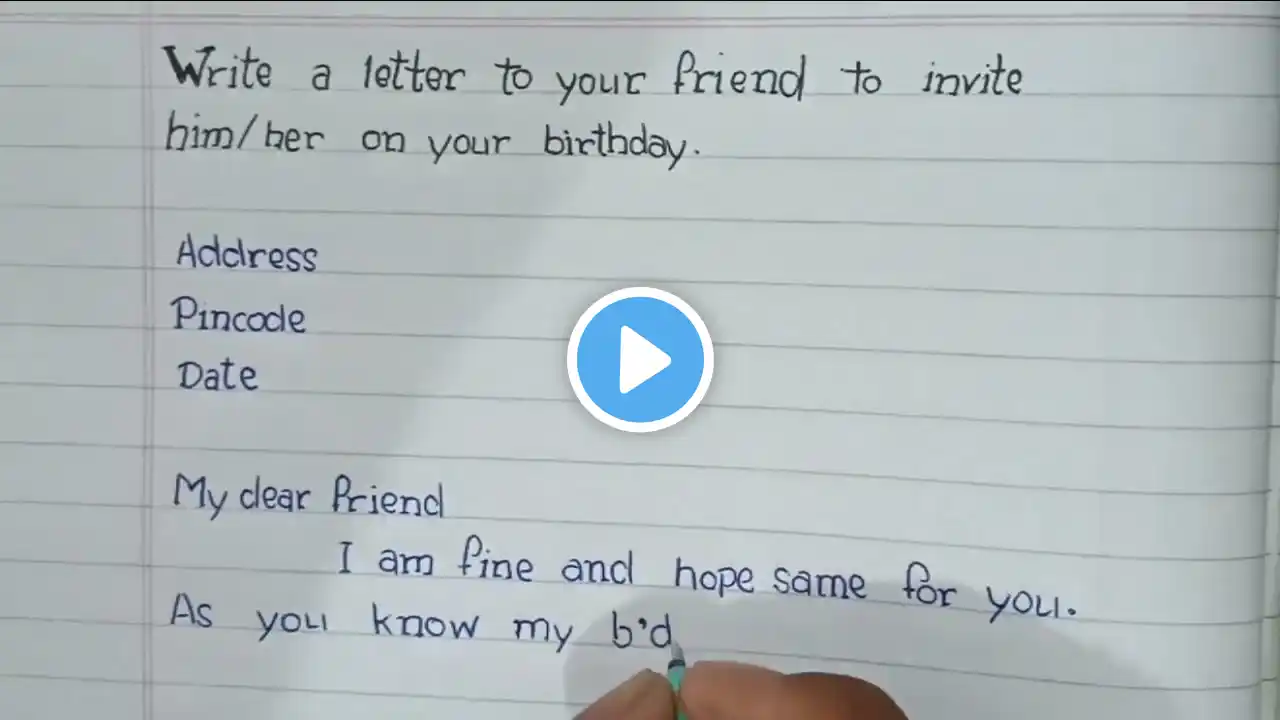 Write a letter to your friend to invite
him/her on your birthday.
Address
Pincode
Date
My dear friend
I am fine and hope same for you.
As you know my b'd